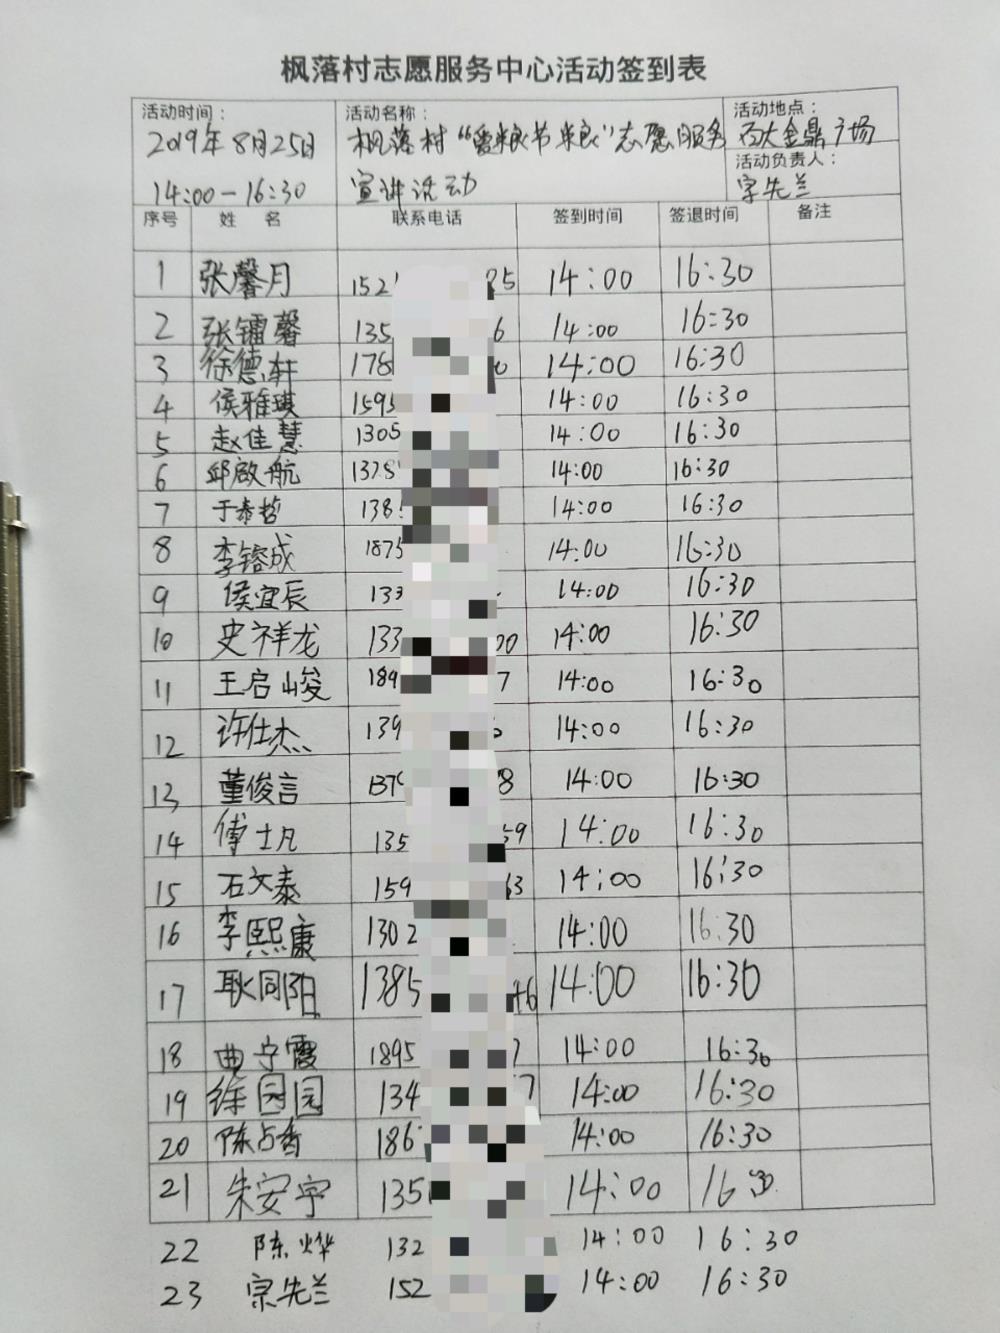 枫落村志愿服务中心活动签到表
活动时间： 活动名称： 活动地点：
2019年8月25日 枫落村“爱粮节粮”志愿服务 石大金鼎广场
活动负责人：
14:00-16:30 宣讲活动 宗先兰
序号 姓 名 联系电话 签到时间 签退时间 备注
1 张馨月 152 85 14:00 16:30
2 张镭馨 135 6 14:00 16:30
3 徐德轩 178 14:00 16:30
4 侯雅琪 1595 14:00 16:30
5 赵佳慧 1305 14:00 16:30
6 邱啟航 1378 14:00 16:30
7 于泰哲 138 14:00 16:30
8 李镕成 1875 14:00 16:30
9 侯宜辰 133 14:00 16:30
10 史祥龙 133 00 14:00 16:30
11 王启峻 189 7 14:00 16:30
12 许仕杰 139 14:00 16:30
13 董俊言 1379 8 14:00 16:30
14 傅士凡 135 59 14:00 16:30
15 石文泰 159 63 14:00 16:30
16 李熙康 1302 14:00 16:30
17 耿同阳 1385 46 14:00 16:30
18 曲宁霞 1895 7 14:00 16:30
19 徐园园 134 7 14:00 16:30
20 陈占香 186 14:00 16:30
21 朱安宇 135 14:00 16:30
22 陈烨 132 14:00 16:30
23 宗先兰 152 14:00 16:30